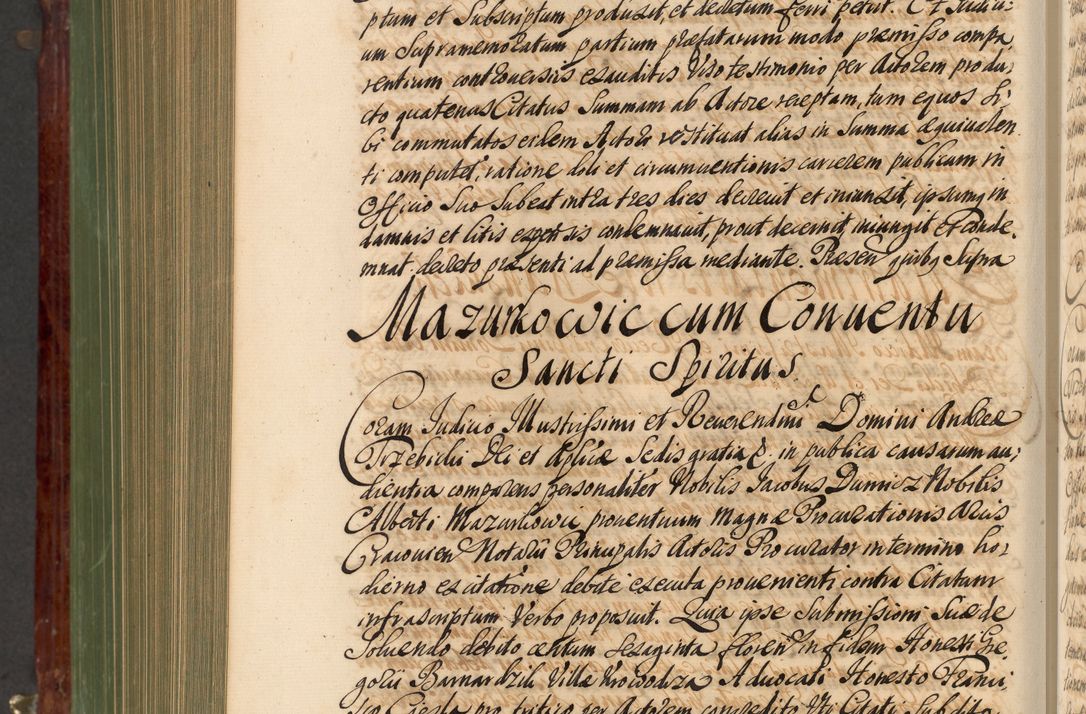 ptum et Subscriptum produxit, et decretum ferri petiit. Et Iudici-
um Supramemoratum partium præfatarum modo præmisso compa,
rentium controuersiis exauditis Viso testimonio per Actorem produ,
cto quatenus Citatus Summam ab Actore receptam, tum equos Si,
bi commutatos eidem Actori restituat alias in Summa æquiualen
ti computet, ratione doli et circumuentionis carcerem publicum in
Officio Suo Subeat intra tres dies decreuit et iniunxit, ipsumq in
damnis et litis expensis condemnauit, prout decernit, iniungit et Conde,
mnat decreto præsenti ad præmissa mediante. Præsen quibq Supra
Mazurkowic cum Conuentu
Sancti Spiritus
Coram Iudicio Illustrissimi et Reuerendmi Domini Andreæ
Trzebicki Dei et Aplicæ Sedis gratia &. in publica causarum au,
dientia comparens personaliter Nobilis Iacobus Duniecz Nobilis
Alberti Mazurkowic prouentuum Magnæ Procurationis Arcis
Cracouien Notarii Principalis Actoris Procurator in termino ho,
dierno ex citatione debite executa proueniente contra Citatum
infrascriptum Verbo proposuit. Quia ipse Submissioni Suæ de
Soluendo debito centum sexaginta floren in fidem Honesti Gre,
gorii Barnardzik Villæ Krowodrza Aduocati Honesto Franci,
sco Ciesla pro tritico per Actorem concredito Vti Citati Subdito